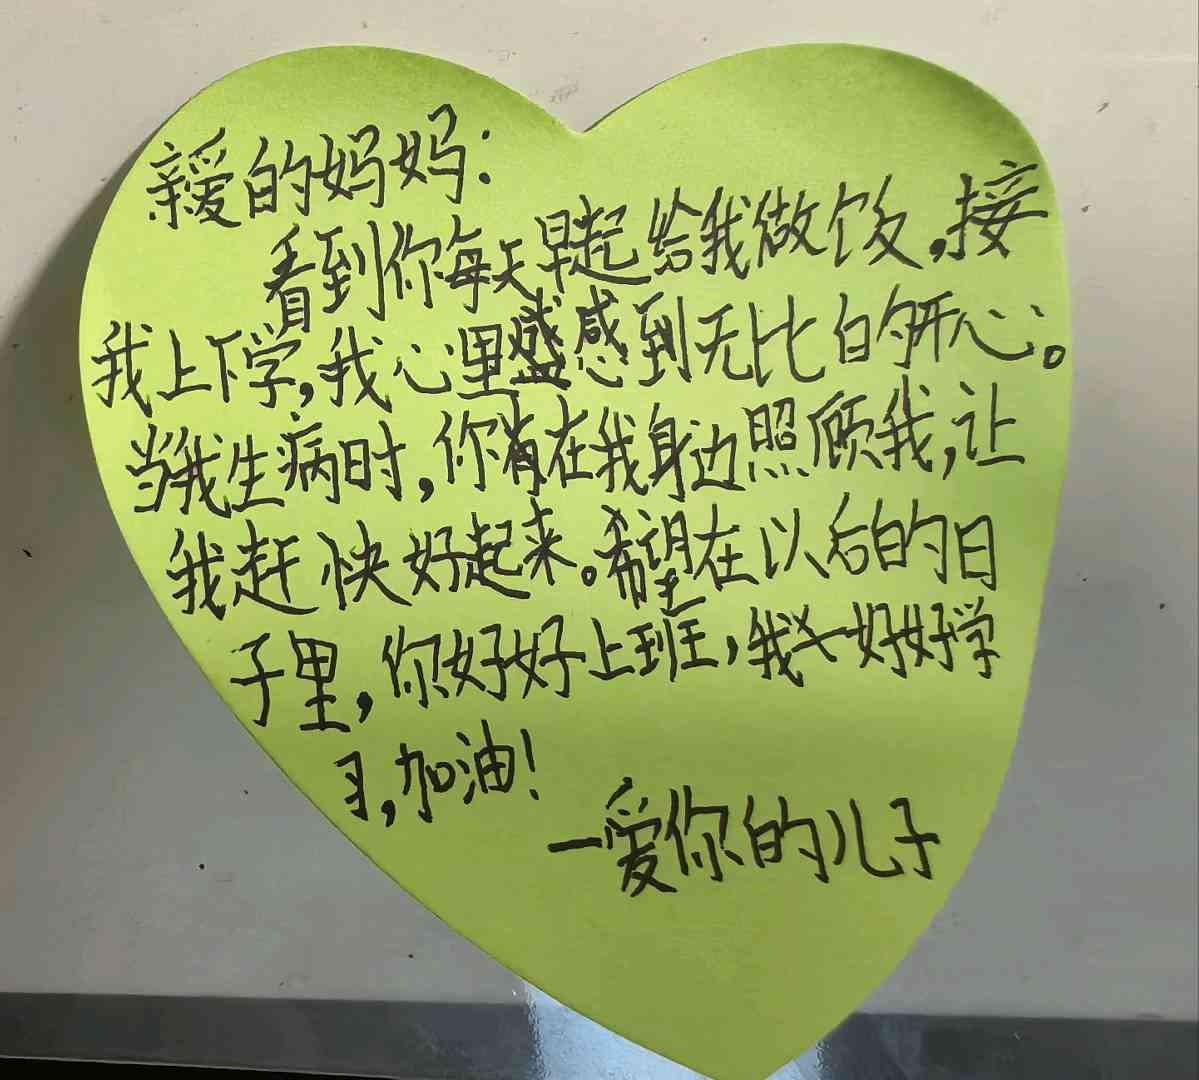 亲爱的妈妈：
看到你每天早起给我做饭，接
我上下学，我心里感到无比的开心。
当我生病时，你在我身边照顾我，让
我赶快好起来。希望在以后的日
子里，你好好上班，我好好学
习，加油！
一爱你的儿子